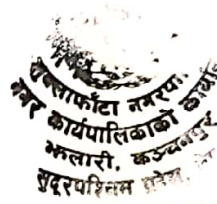 शुक्लाफाँटा नगरपा
नगर कार्यपालिकाको कार्या
झलारी, कञ्चनपुर
सुदूरपश्चिम प्रदेश,